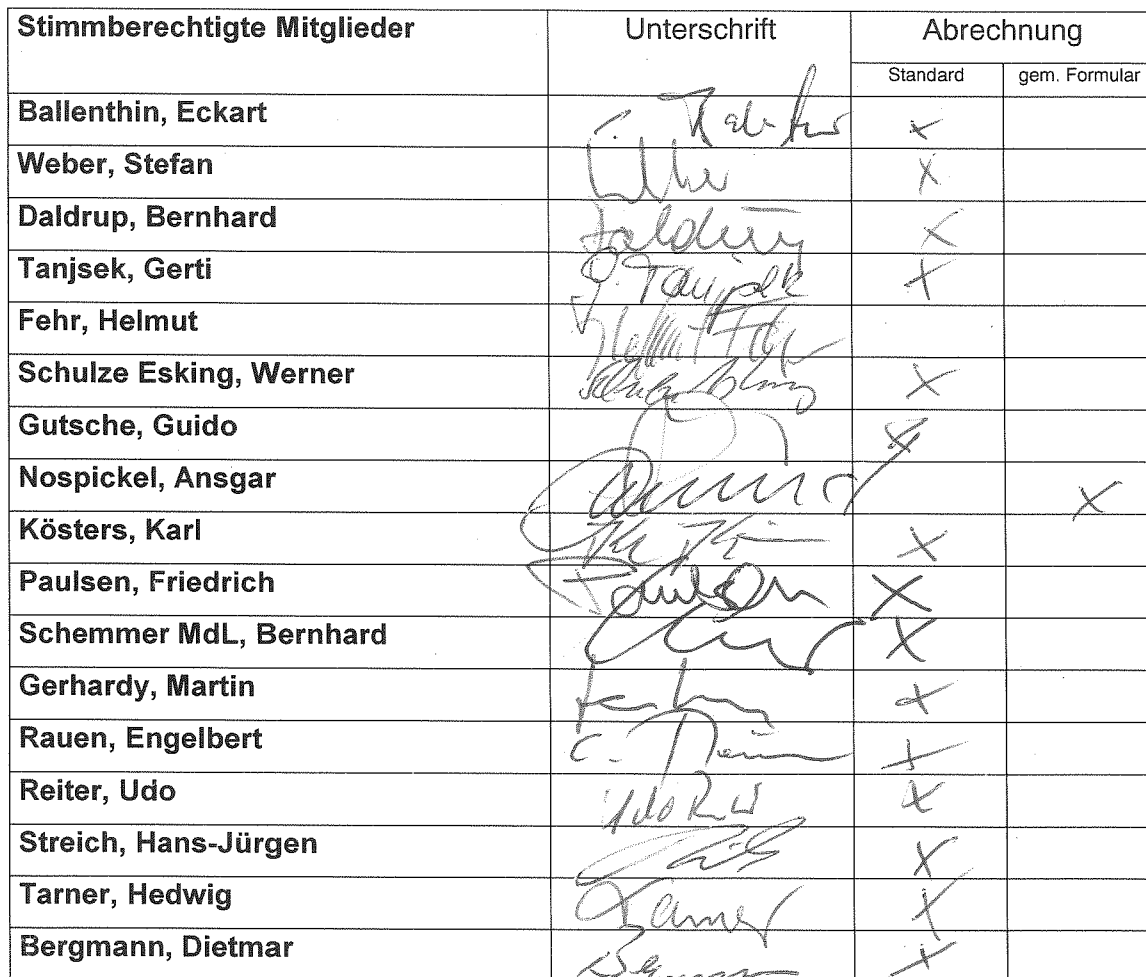 Stimmberechtigte Mitglieder Unterschrift Abrechnung
Standard gem. Formular
Ballenthin, Eckart x
Weber, Stefan x
Daldrup, Bernhard Daldrup x
Tanjsek, Gerti G. Tanjsek x
Fehr, Helmut Helmut Fehr
Schulze Esking, Werner x
Gutsche, Guido x
Nospickel, Ansgar x
Kösters, Karl x
Paulsen, Friedrich Paulsen x
Schemmer MdL, Bernhard x
Gerhardy, Martin x
Rauen, Engelbert x
Reiter, Udo x
Streich, Hans-Jürgen x
Tarner, Hedwig Tarner x
Bergmann, Dietmar x